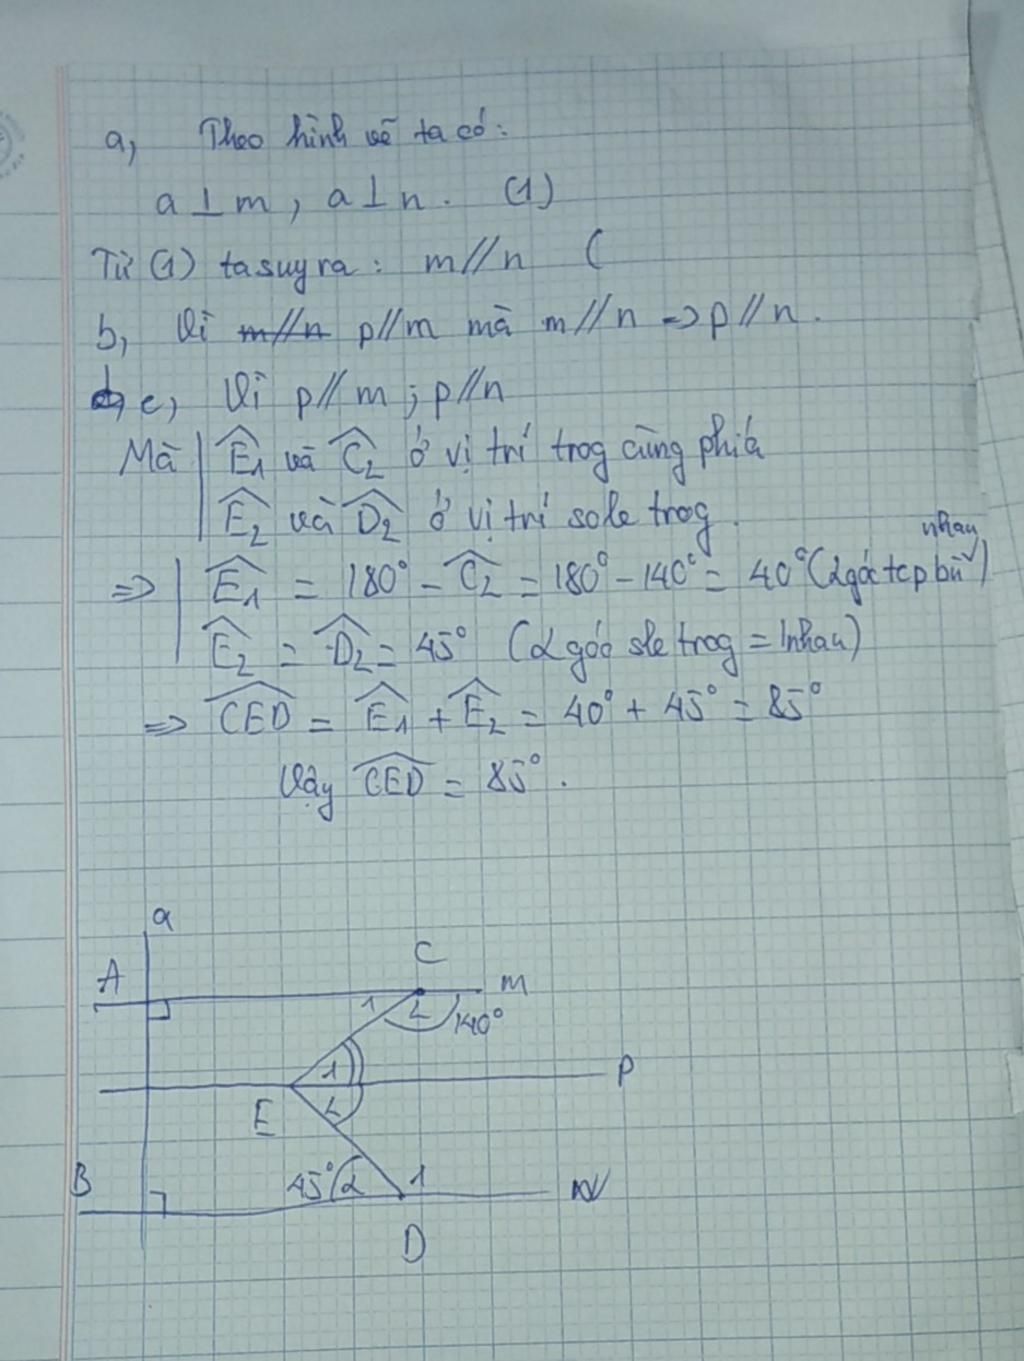 a, Theo hình vẽ ta có:
a⊥m, a⊥n. (1)
Từ (1) ta suy ra: m//n (
b, Vì m//n p//m mà m//n => p//n.
c, Vì p//m; p//n
Mà | Ê1 và Ĉ2 ở vị trí trog cùng phiá
Ê2 và D̂2 ở vị trí sole trog.
nhau
=> | Ê1 = 180° - Ĉ2 = 180° - 140° = 40° (2 góc tcp bù)
Ê2 = D̂2 = 45° (2 góc sle trog = nhau)
=> CED = Ê1 + Ê2 = 40° + 45° = 85°
Vậy CED = 85°.
a
C
A
m
1 2 140°
1
P
E
2
B
45° 2 1
N
D